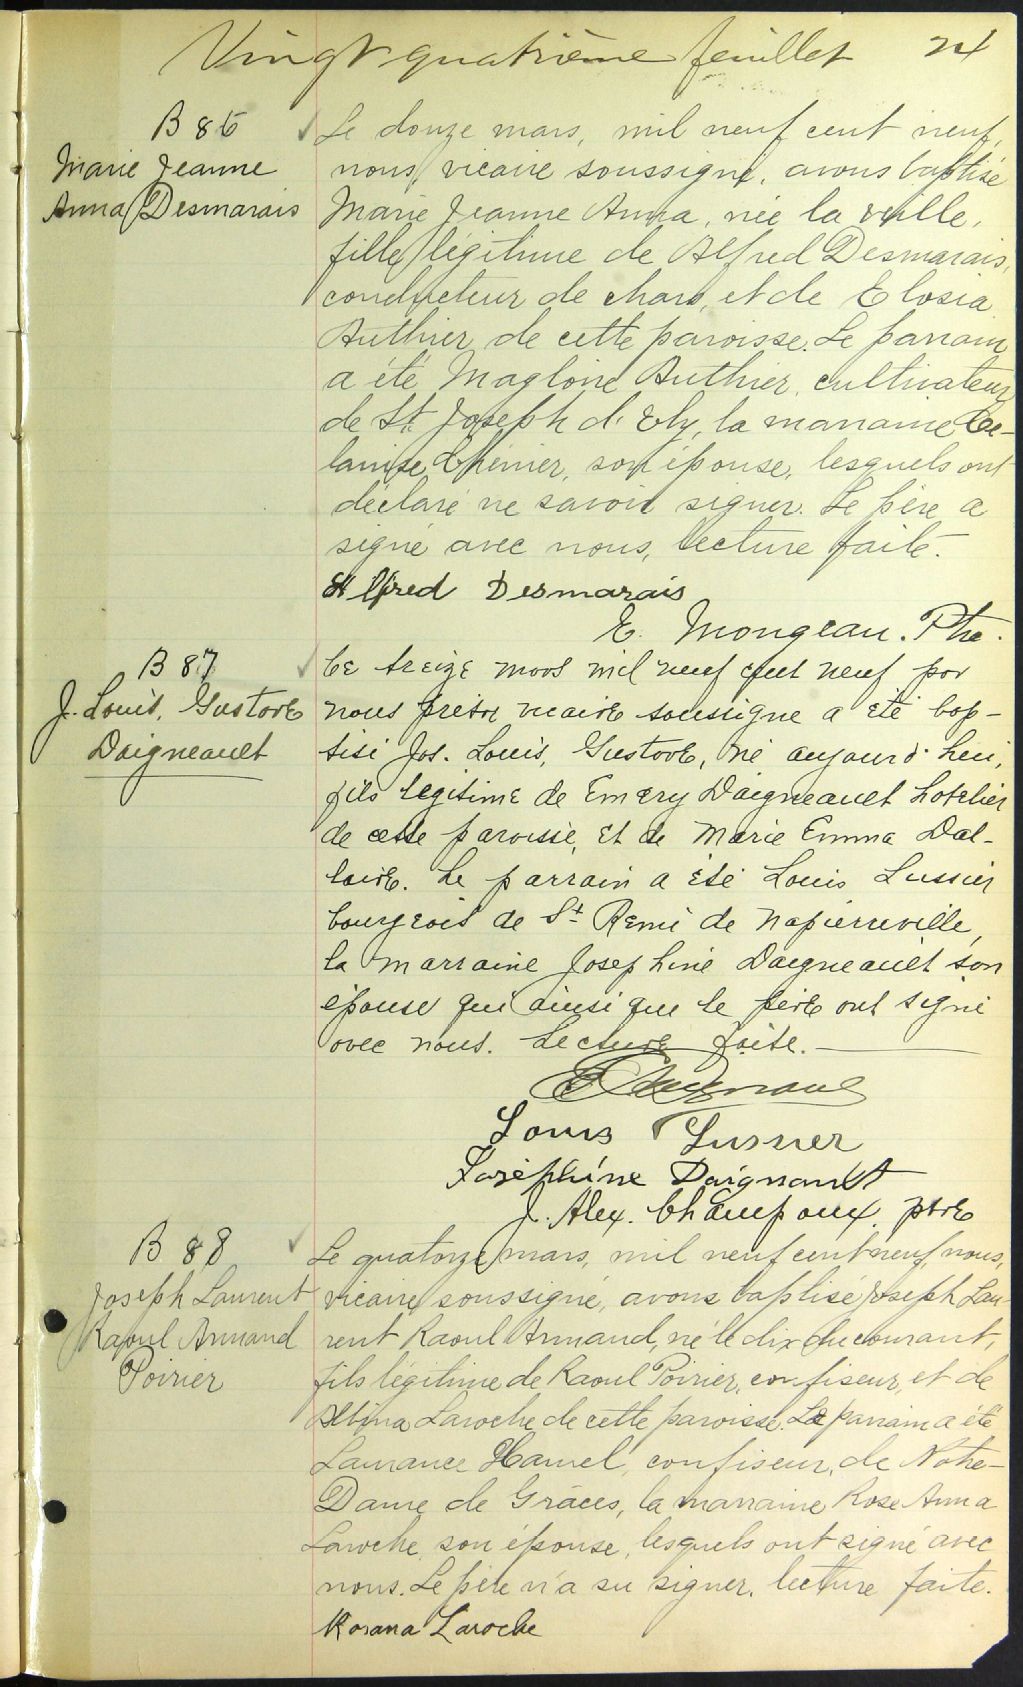 Vingt quatrième feuillet 24
B 86
Marie Jeanne
Anna Desmarais
Le douze mars, mil neuf cent neuf,
nous, vicaire soussigné, avons baptisé
Marie Jeanne Anna, née la veille,
fille légitime de Alfred Desmarais,
conducteur de chars, et de Elosia
Authier de cette paroisse. Le parrain
a été Magloire Authier, cultivateur
de St. Joseph d'Ely, la marraine Cé-
lanise Chénier, son épouse, lesquels ont
déclaré ne savoir signer. Le père a
signé avec nous, lecture faite.
Alfred Desmarais
E. Mongeau. Ptre.
B 87
J. Louis, Gustave
Daigneault
Le treize mars mil neuf cent neuf par
nous prêtre vicaire soussigné a été bap-
tisé Jos. Louis, Gustave, né aujourd'hui,
fils légitime de Emery Daigneault hotelier
de cette paroisse, et de Marie Emma Dal-
laire. Le parrain a été Louis Lussier
bourgeois de St Rémi de Napierreville,
la marraine Josephine Daigneault son
épouse qui ainsi que le père ont signé
avec nous. Lecture faite.
Louis Lussier
Joséphine Daignault
J. Alex. Champoux. ptre
B 88
Joseph Laurent
Raoul Armand
Poirier
Le quatorze mars, mil neuf cent neuf, nous,
vicaire soussigné, avons baptisé Joseph Lau-
rent Raoul Armand, né le dix du courant,
fils légitime de Raoul Poirier, confiseur, et de
Albina Laroche de cette paroisse. Le parrain a été
Laurance Hamel, confiseur, de Notre-
Dame de Grâces, la marraine Rose Anna
Laroche, son épouse, lesquels ont signé avec
nous. Le père n'a su signer. lecture faite.
Rosana Laroche